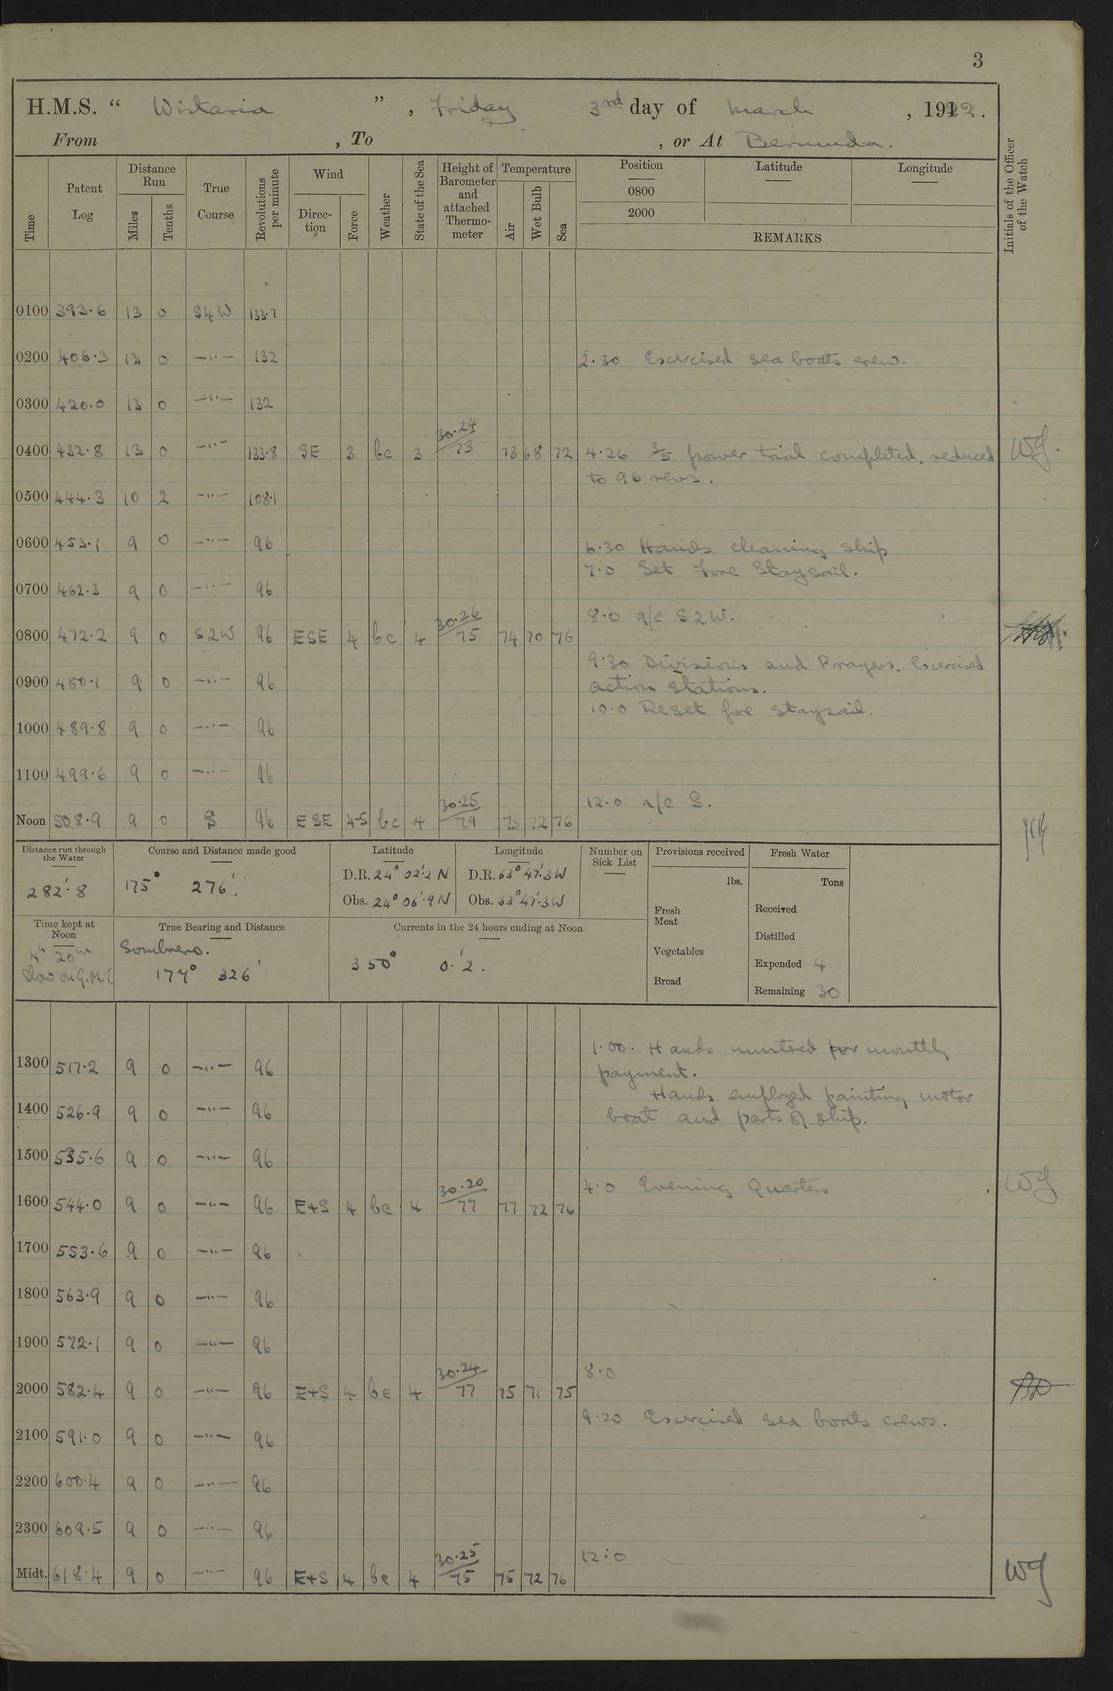 3
H.M.S. “ Wistaria ”, Friday 3rd day of March, 1922.
From , To , or At Bermuda.
Time
Patent Log
Distance Run
Miles
Tenths
True Course
Revolutions per minute
Wind
Direction
Force
Weather
State of the Sea
Height of Barometer and attached Thermometer
Temperature
Air
Wet Bulb
Sea
Position
0800
2000
Latitude
Longitude
REMARKS
Initials of the Officer of the Watch
0100 393.6 13 0 S4W 133.7
0200 406.3 13 0 —"— 132 2.30 Exercised sea boats crew.
0300 420.0 13 0 —"— 132
0400 432.8 13 0 —"— 133.8 SE 3 bc 3 30.24/73 73 68 72 4.26 3/5 power trial completed, reduced
to 96 revs.
WG.
0500 444.3 10 2 —"— 108.1
0600 453.1 9 0 —"— 96 6.30 Hands cleaning ship
7.0 Set Fore Staysail.
0700 462.3 9 0 —"— 96
8.0 a/c S2W.
0800 472.2 9 0 S2W 96 ESE 4 bc 4 30.26/75 74 70 76
9.30 Divisions and Prayers. Exercised
0900 480.1 9 0 —"— 96 action stations.
10.0 Reset fore staysail.
1000 489.8 9 0 —"— 96
1100 499.6 9 0 —"— 96
12.0 a/c S.
Noon 508.9 9 0 S 96 ESE 4-5 bc 4 30.25/79 75 72 76
Distance run through the Water
282'.8
Course and Distance made good
175° 276'.
Latitude
D.R. 24° 02'.2 N
Obs. 24° 06'.9 N
Longitude
D.R. 63° 47'.3 W
Obs. 63° 47'.3 W
Number on Sick List
Provisions received
lbs.
Fresh Meat
Vegetables
Bread
Fresh Water
Tons
Received
Distilled
Expended 4
Remaining 30
Time kept at Noon
4h 20m
Slow on G.M.T.
True Bearing and Distance
Sombrero.
177° 326'
Currents in the 24 hours ending at Noon
350° 0'.2.
1.00. Hands mustered for monthly
1300 517.2 9 0 —"— 96 payment.
Hands employed painting motor
1400 526.9 9 0 —"— 96 boat and parts of ship.
1500 535.6 9 0 —"— 96
4.0 Evening Quarters WG
1600 544.0 9 0 —"— 96 E+S 4 bc 4 30.20/77 77 72 76
1700 553.6 9 0 —"— 96
1800 563.9 9 0 —"— 96
1900 572.1 9 0 —"— 96
8.0
2000 582.4 9 0 —"— 96 E+S 4 bc 4 30.24/77 75 71 75
9.20 Exercised sea boats crews.
2100 591.0 9 0 —"— 96
2200 600.4 9 0 —"— 96
2300 609.5 9 0 —"— 96
12.0
Midt. 618.4 9 0 —"— 96 E+S 4 bc 4 30.25/75 75 72 76 WG